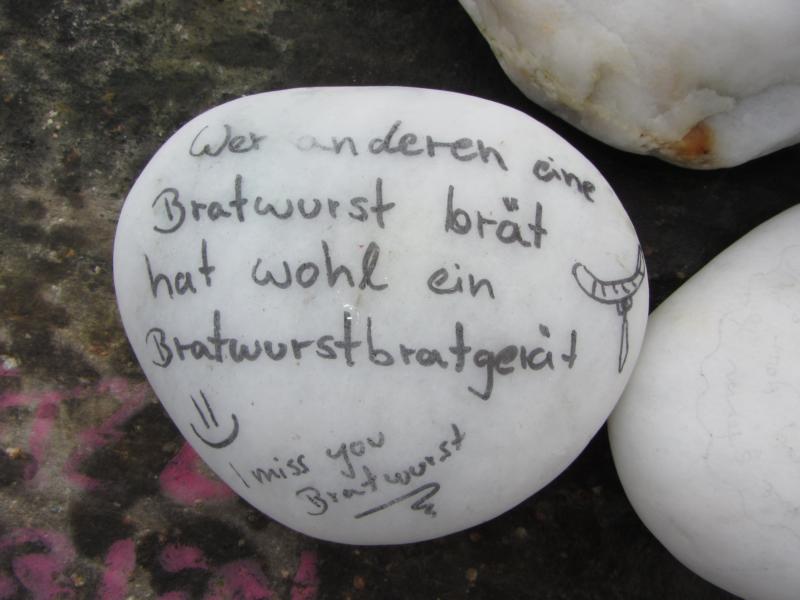 Wer anderen eine
Bratwurst brät
hat wohl ein
Bratwurstbratgerät
I miss you
Bratwurst